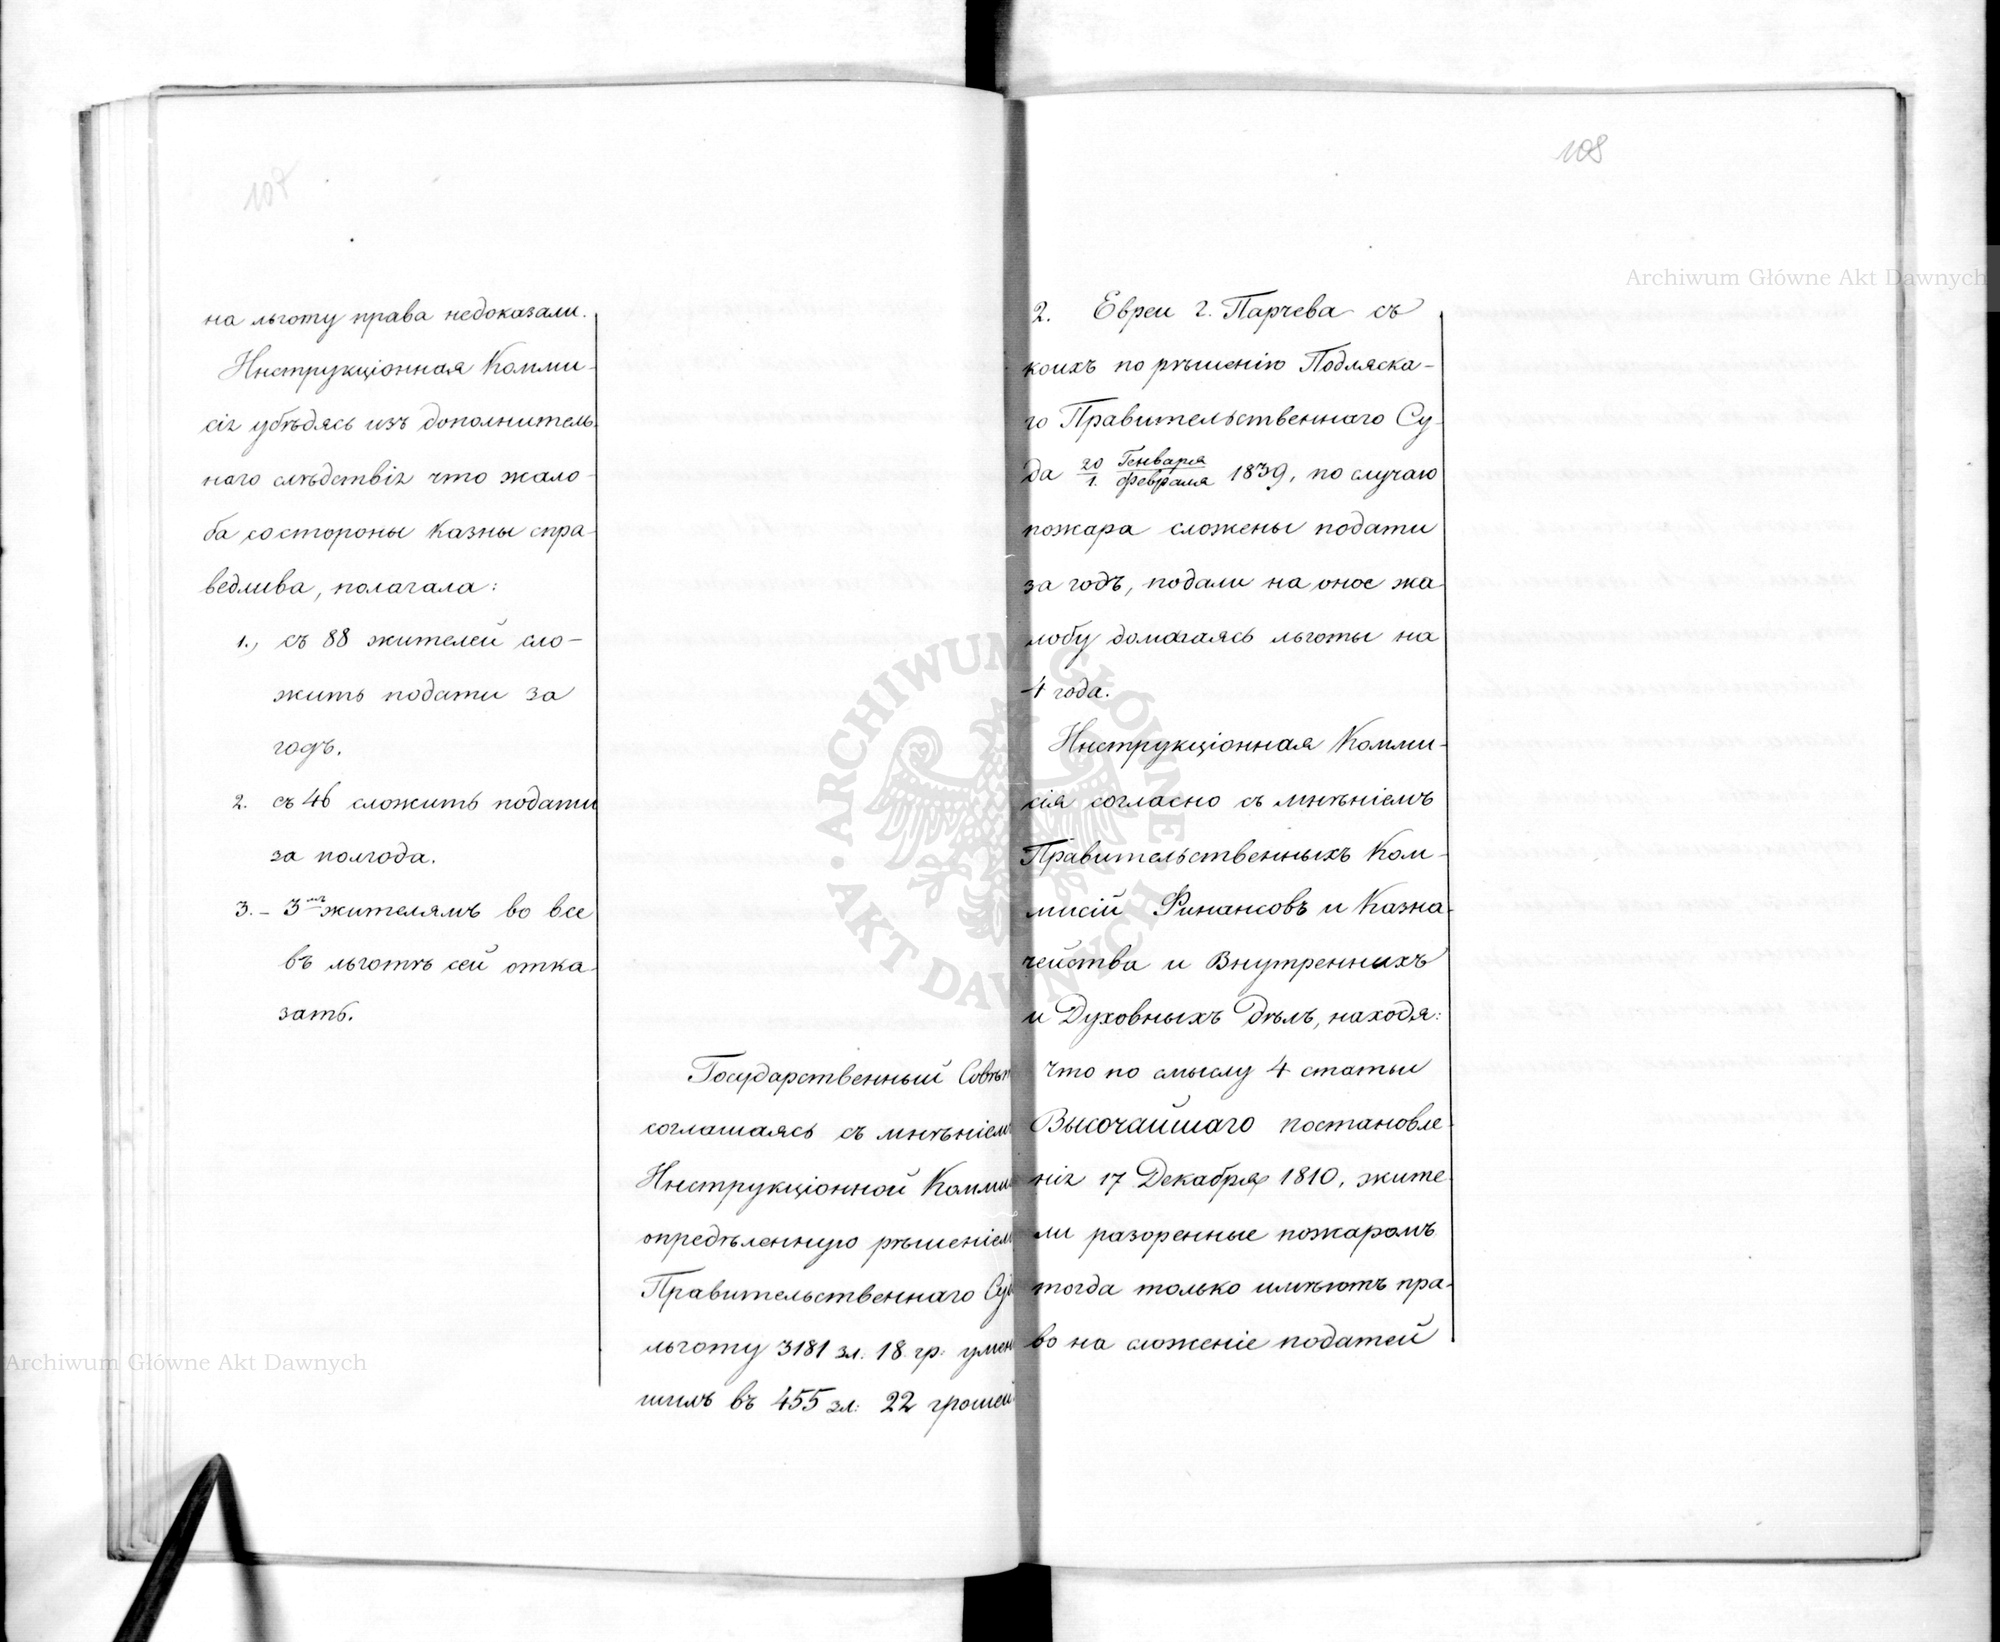 107
на льготу права недоказали.
Инструкціонная Комми-
сія убѣдясь изъ дополнитель-
наго слѣдствія что жало-
ба состороны Казны спра-
ведлива, полагала:
1., съ 88 жителей сло-
жить подати за
годъ.
2. съ 46 сложить подати
за полгода.
3. - 3мъ жителямъ во все
въ льготѣ сей отка-
зать.
Государственный Совѣт
соглашаясь съ мнѣніем
Инструкціонной Комми
опредѣленную рѣшеніем
Правительственнаго Суд
льготу 3181 зл. 18 гр: умен
шилъ въ 455 зл: 22 грошей
108
2. Евреи г. Парчева съ
коихъ по рѣшенію Подляска-
го Правительственнаго Су-
да 20 Генваря / 1. Февраля 1839, по случаю
пожара сложены подати
за годъ, подали на оное жа
лобу домогаясь льготы на
4 года.
Инструкціонная Комми-
сія согласно съ мнѣніемъ
Правительственныхъ Ком-
мисій Финансовъ и Казна-
чейства и Внутренныхъ
и Духовныхъ Дѣлъ, находя:
что по смыслу 4 статьи
Высочайшаго постановле
нія 17 Декабря 1810, жите
ли разоренные пожаромъ
тогда только имѣютъ пра-
во на сложеніе податей
Archiwum Główne Akt Dawnych
Archiwum Główne Akt Dawnych
ARCHIWUM GŁÓWNE AKT DAWNYCH